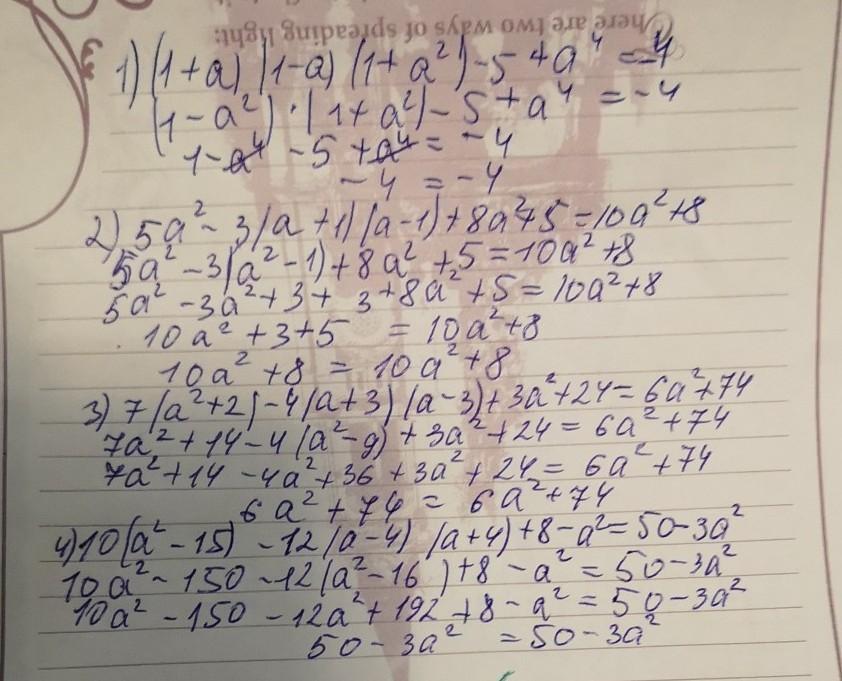 There are two ways of spreading light:
1) (1+a) (1-a) (1+a²)-5+a⁴ =-4
(1-a²)·(1+a²)-5+a⁴ =-4
1-a⁴ -5 +a⁴ = -4
-4 = -4
2) 5a² - 3(a+1)(a-1)+8a²+5 =10a²+8
5a² -3(a²-1)+8a² +5=10a²+8
5a² -3a²+3+ 3+8a²+5=10a²+8
10a² +3+5 = 10a²+8
10a² +8 = 10a²+8
3) 7(a²+2)-4(a+3)(a-3)+3a²+24=6a²+74
7a²+14-4(a²-9)+3a²+24=6a²+74
7a²+14 -4a²+36 +3a²+24= 6a²+74
6a²+74 = 6a²+74
4) 10(a²-15) -12(a-4) (a+4)+8-a²=50-3a²
10a²-150 -12(a²-16 )+8 -a² = 50-3a²
10a² -150 -12a²+192 +8-a² =50-3a²
50-3a² =50-3a²